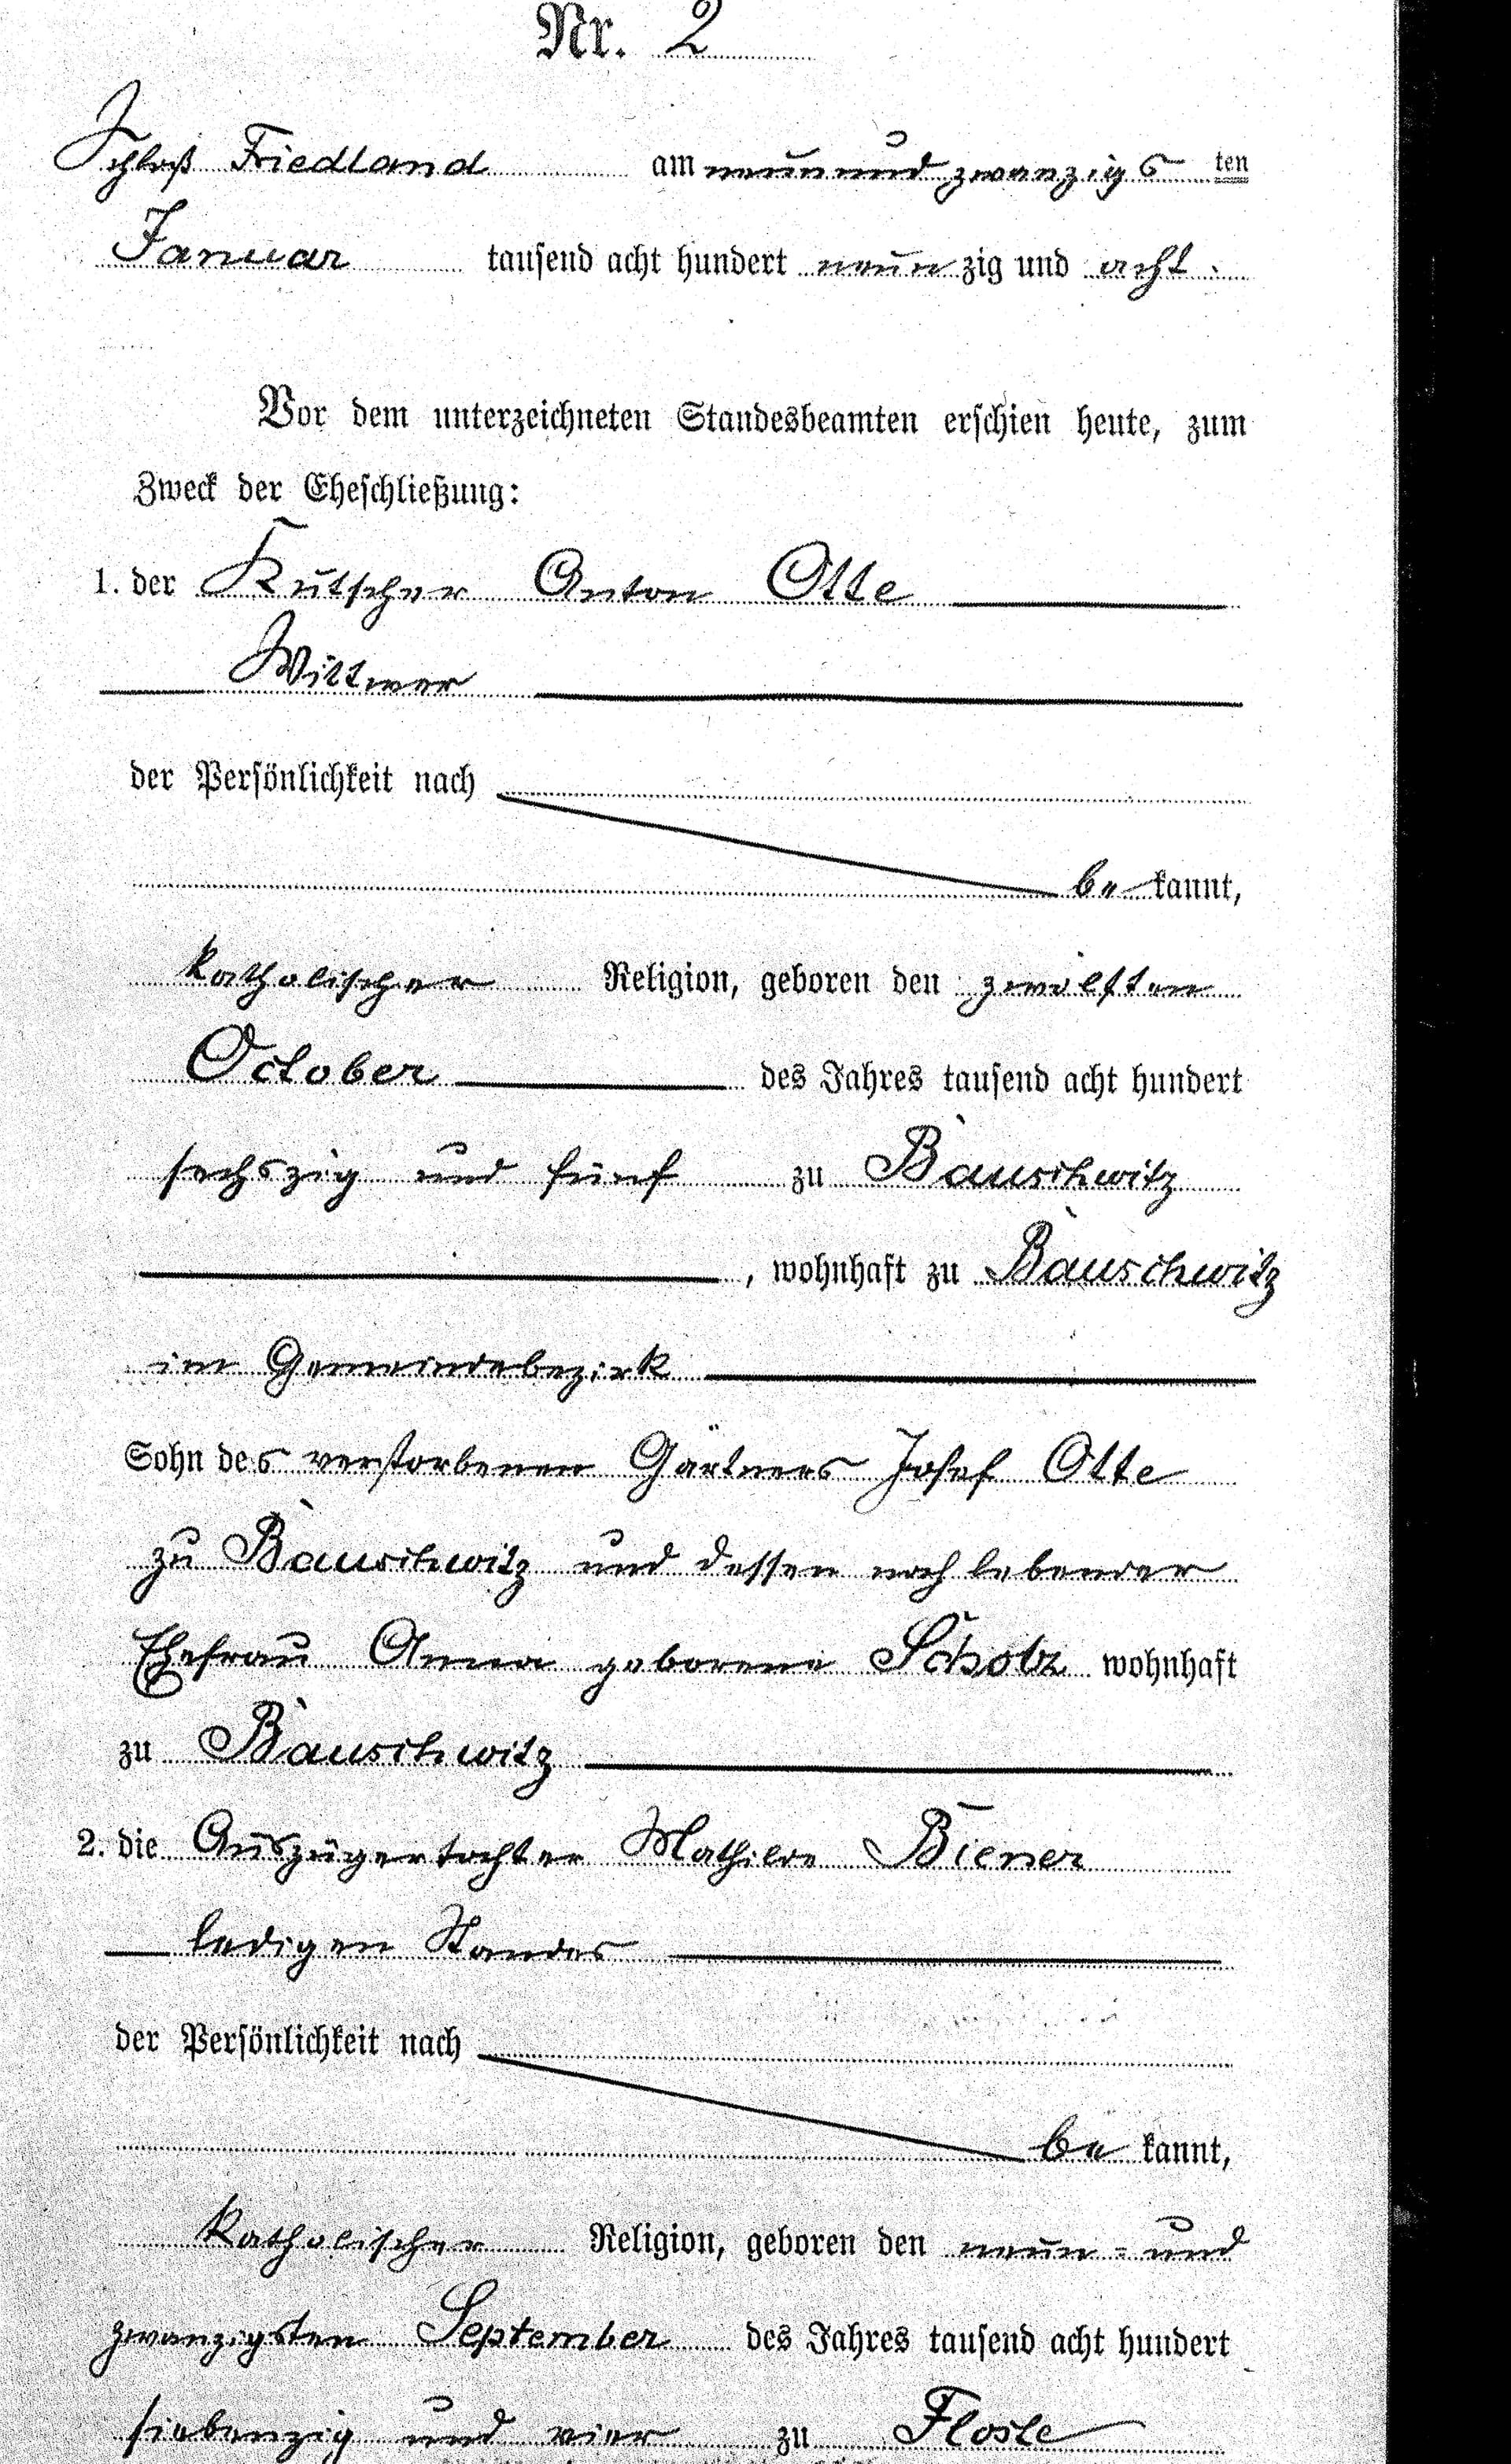 Nr. 2
Schloß Friedland am neunundzwanzigs ten
Januar tausend acht hundert neun zig und acht.
Vor dem unterzeichneten Standesbeamten erschien heute, zum
Zweck der Eheschließung:
1. der Kutscher Anton Otte
Wittwer
der Persönlichkeit nach
be kannt,
katholischer Religion, geboren den zwölften
October des Jahres tausend acht hundert
sechszig und fünf zu Bauschwitz
, wohnhaft zu Bauschwitz
im Gemeindebezirk
Sohn des verstorbenen Gärtners Josef Otte
zu Bauschwitz und dessen noch lebender
Ehefrau Anna geborene Scholz wohnhaft
zu Bauschwitz
2. die Auszügertochter Mathilde Biener
ledigen Standes
der Persönlichkeit nach
be kannt,
katholischer Religion, geboren den neun- und
zwanzigsten September des Jahres tausend acht hundert
siebenzig und vier zu Floste